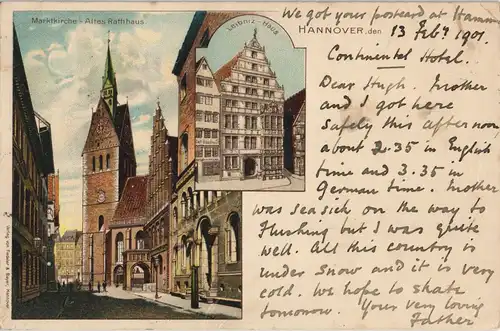 We got your postcard at Hamm
Marktkirche - Altes Rathhaus
Leibniz-Haus
HANNOVER, den
13 Feby 1901.
Continental Hotel.
Dear Hugh. Mother
and I got here
safely this afternoon
about 2.35 in English
time and 3.35 in
German time. Mother
was seasick on the way to
Flushing but I was quite
well. All this country is
under snow and it is very
cold. We hope to skate
tomorrow. Your very loving
Father